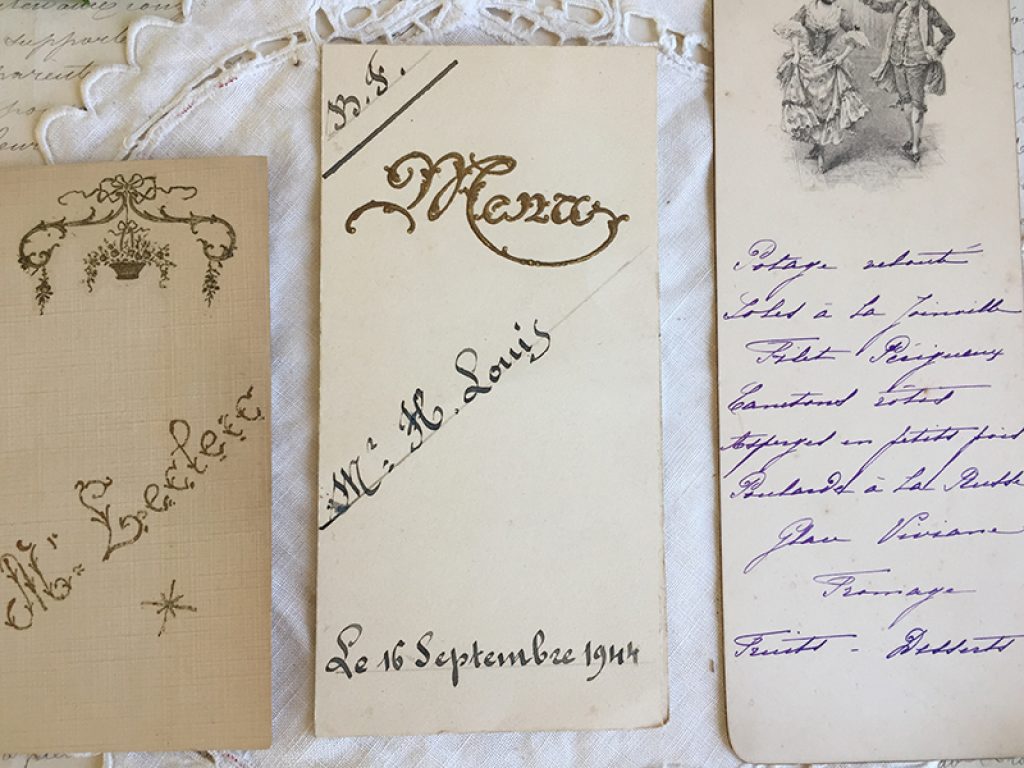 M. Leclerc
B. F.
Menu
Mr. H. Louis
Le 16 Septembre 1944
Potage velouté
Soles à la Joinville
Filet Périgueux
Canetons rôtis
Asperges en petits pois
Poularde à la Russe
Glace Viviane
Fromage
Fruits - Desserts
supporte
parent